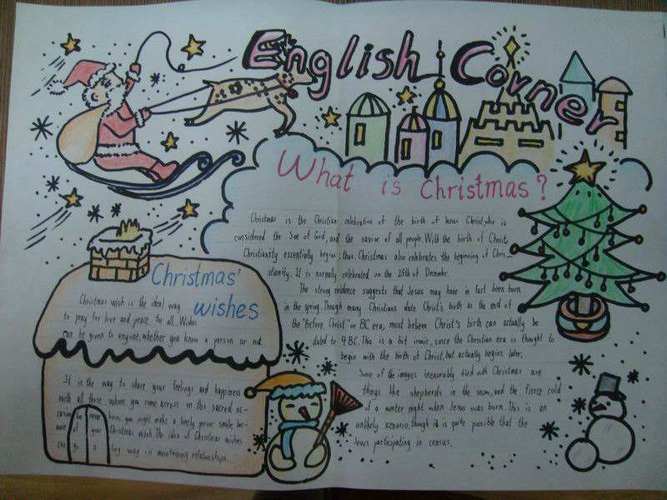 English Corner
What is Christmas?
Christmas is the Christian celebration of the birth of Jesus Christ, who is
considered the Son of God, and the savior of all people. With the birth of Christ
Christianity essentially begins, thus Christmas also celebrates the beginning of Chris-
tianity. It is normally celebrated on the 25th of December.
The strong evidence suggests that Jesus may have in fact been born
in the spring. Though many Christians date Christ's birth as the end of
the "Before Christ" or BC era, most believe Christ's birth can actually be
dated to 4 BC. This is a bit ironic, since the Christian era is thought to
begin with the birth of Christ, but actually begins later.
Some of the images inexorably tied with Christmas are
things like shepherds in the snow, and the fierce cold
of a winter night when Jesus was born. This is an
unlikely scenario, though it is quite possible that the
Jews participating in census.
Christmas' wishes
Christmas wish is the ideal way
to pray for love and peace for all. Wishes
can be given to anyone, whether you know a person or not.
It is the way to share your feelings and happiness
with all those whom you come across in this sacred oc-
you might make a lonely person smile be-
of your Christmas wish. The idea of Christmas wishes
way in maintaining relationships.